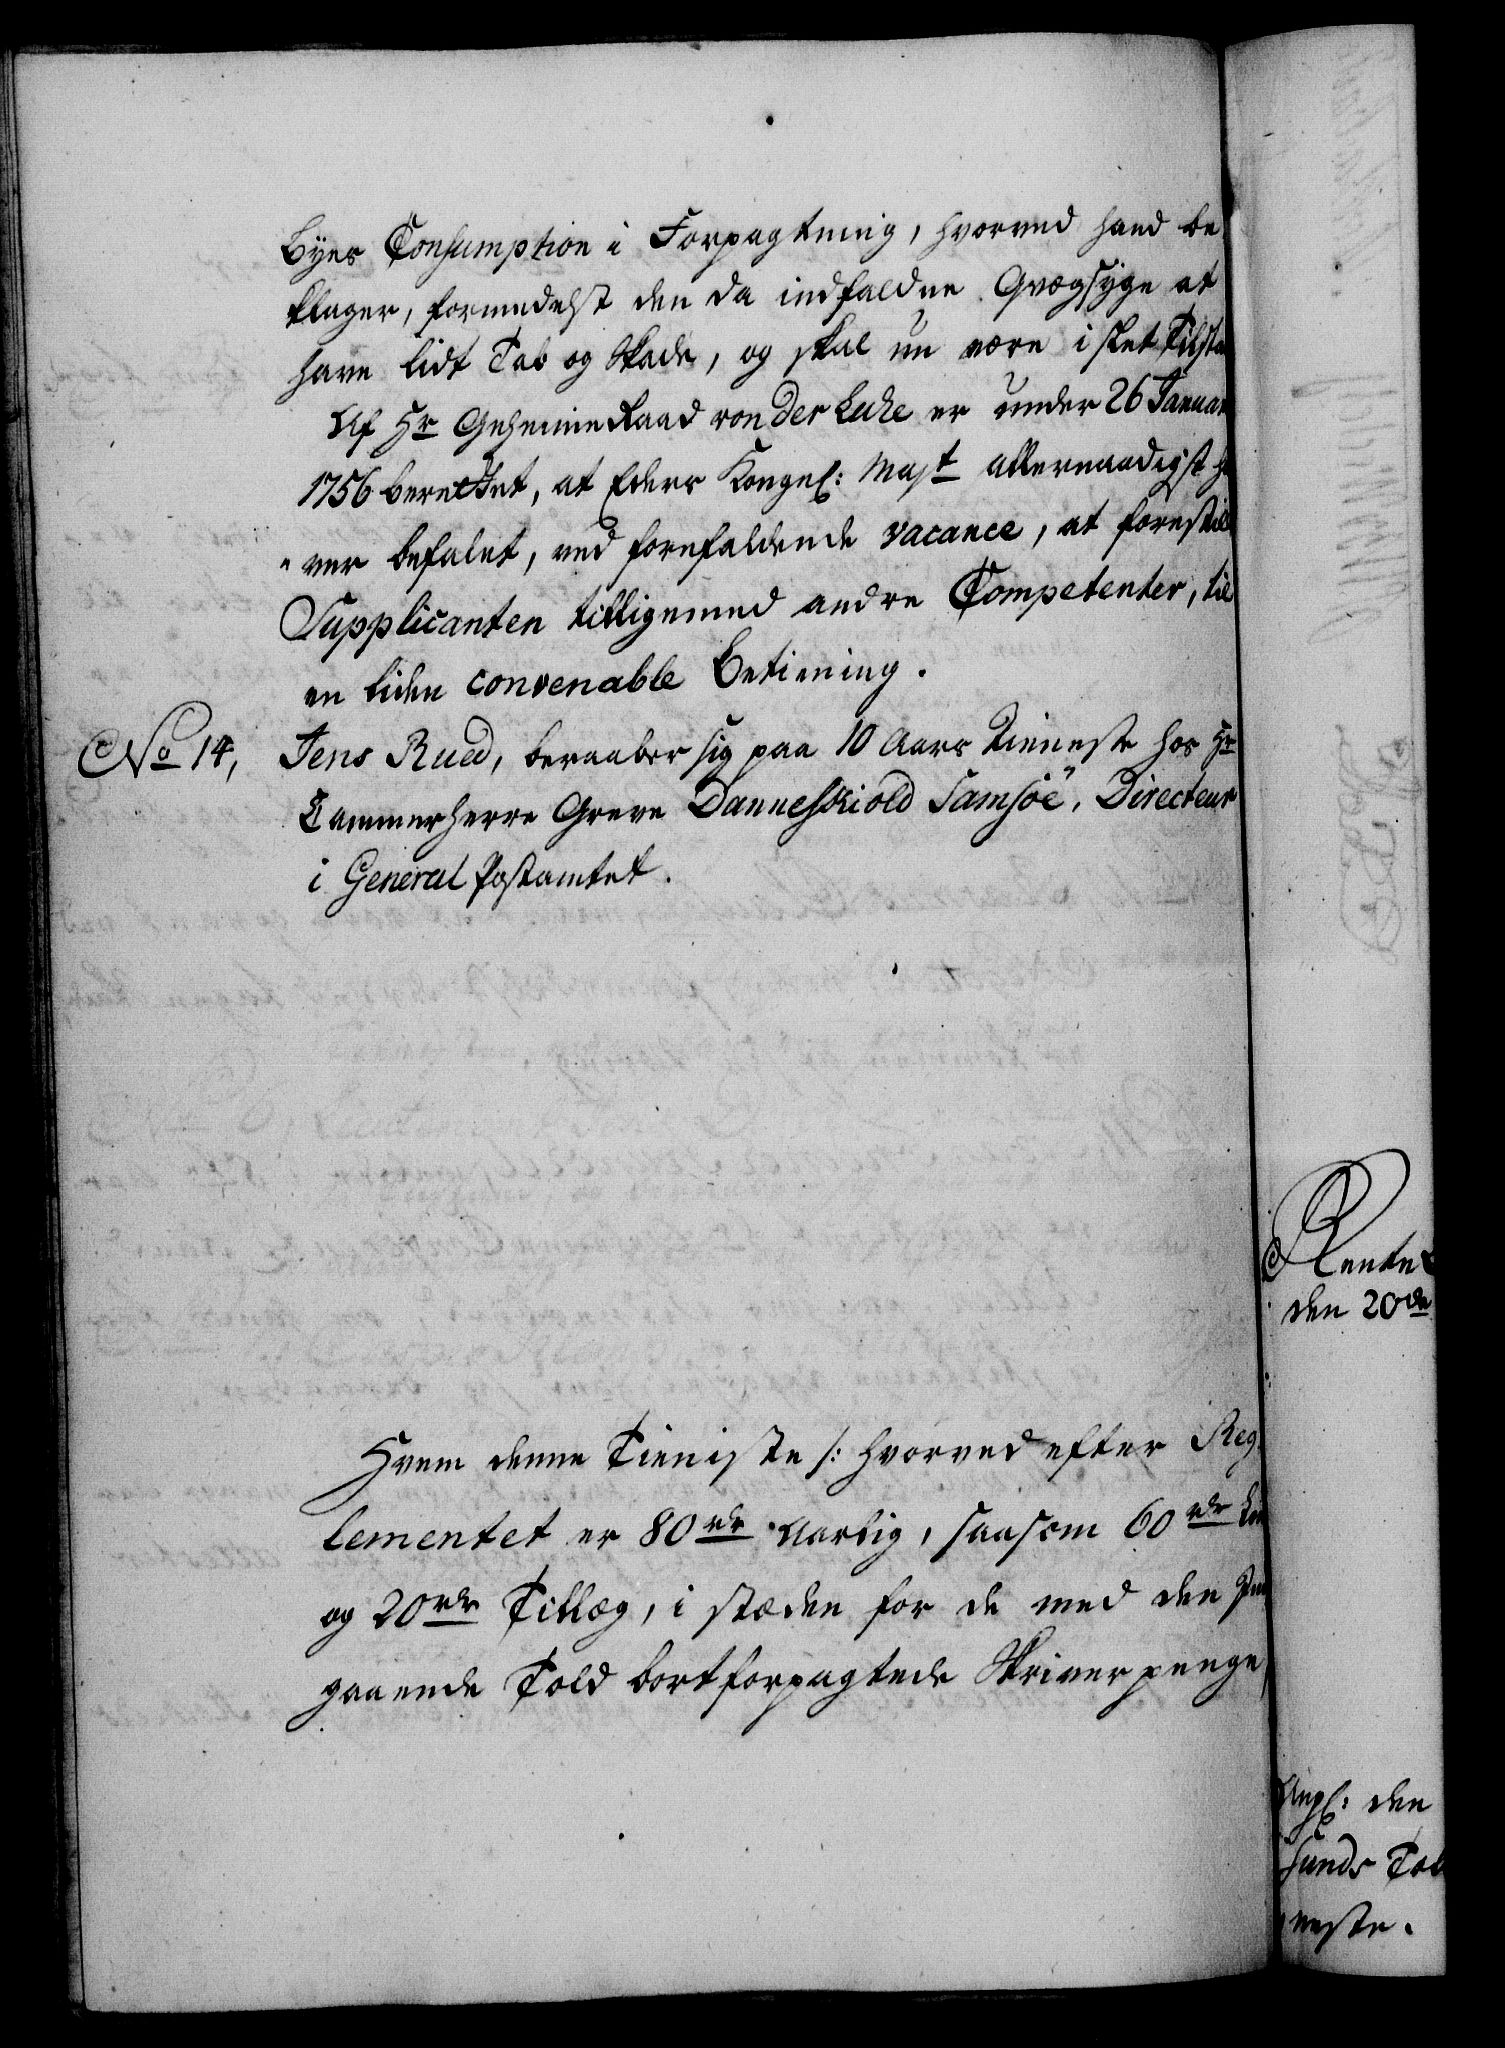 Byes Consumption i Forpagtning, hvorved hand be
klager, formedelst den da indfaldne Qvægsyge at
have lidt Tab og Skade, og skal nu være i slet Tilsta
Af Hr Geheime Raad von der Luhe er under 26 Januar
1756 berettet, at Eders Kongel: Mayt allernaadigst ha
ver befalet, ved forefaldende vacance, at forestille
Supplicanten tilligemed andre Competenter, til
en liden convenable Betiening.
No 14, Jens Rued, beraaber sig paa 10 Aars Tieneste hos Hr
Cammerherre Greve Danneskiold Samsöe, Directeur
i General Postamtet.
Hvem denne Tieniste /: hvorved efter Reg
lementet er 80 rdr Aarlig, saasom 60 rdr
og 20 rdr Tillæg, i stæden for de med den
gaaende Told bortforpagtede Skriverpenge,
Rente
den 20de
den
sunds Tol
neste.